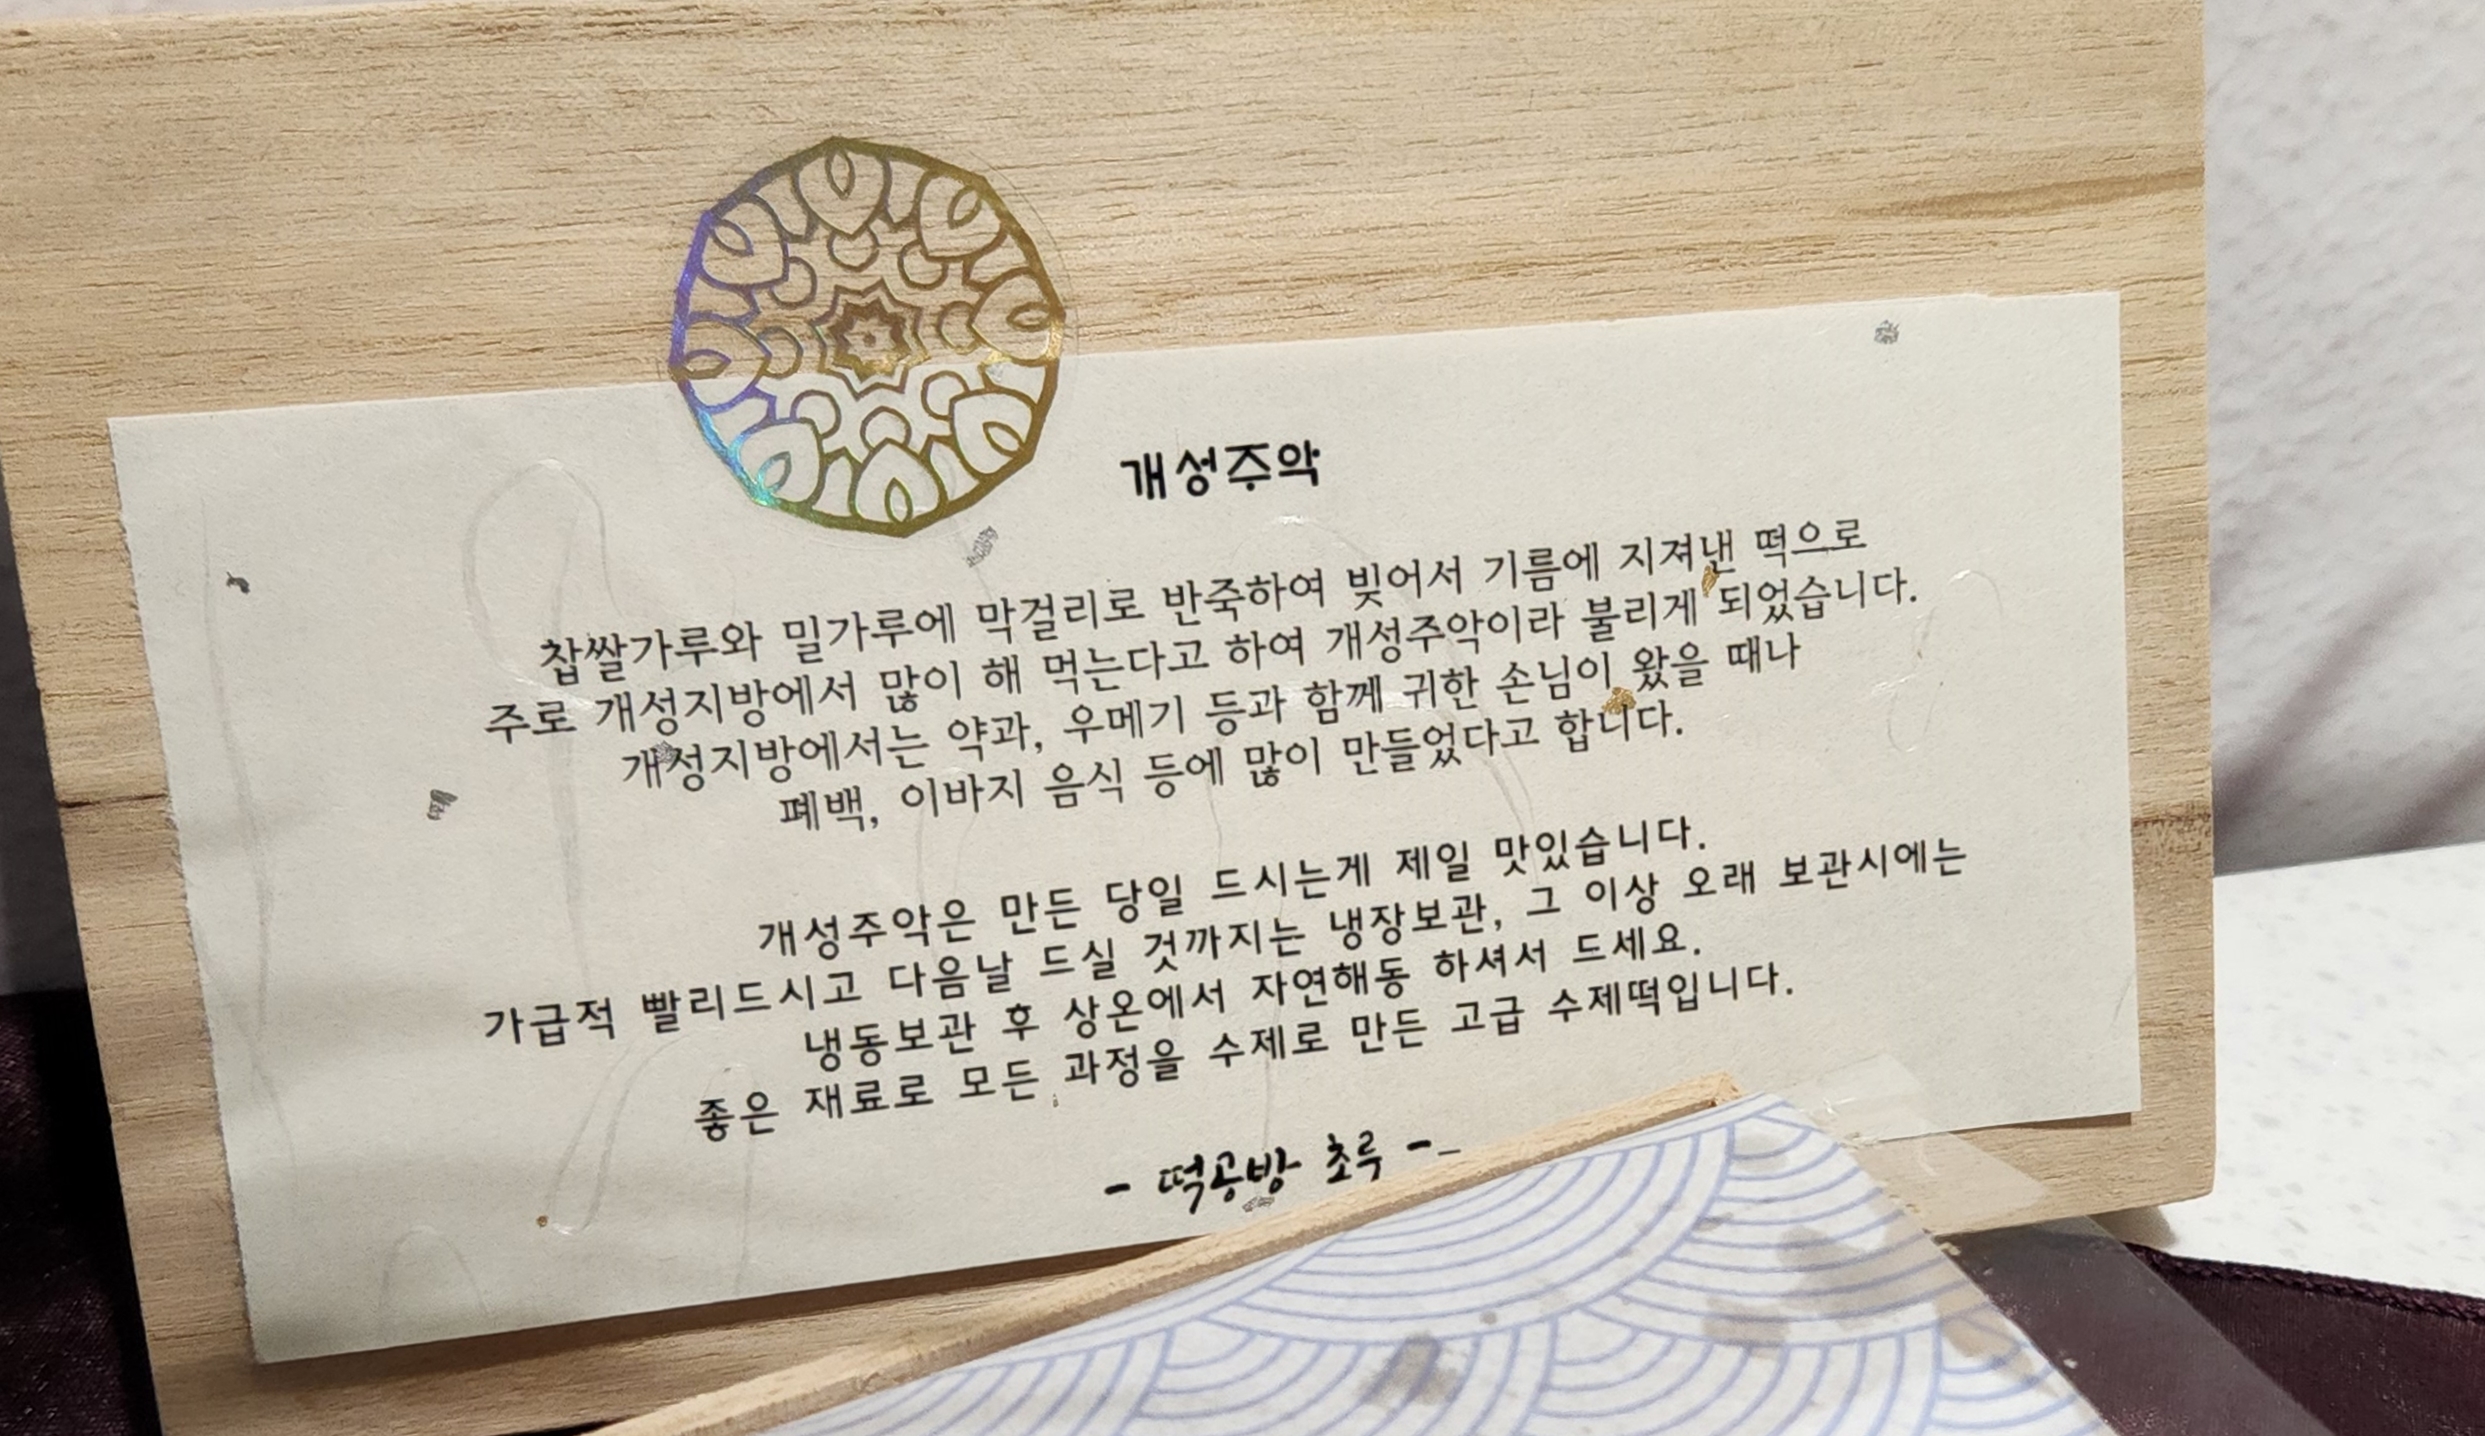 개성주악
찹쌀가루와 밀가루에 막걸리로 반죽하여 빚어서 기름에 지져낸 떡으로
주로 개성지방에서 많이 해 먹는다고 하여 개성주악이라 불리게 되었습니다.
개성지방에서는 약과, 우메기 등과 함께 귀한 손님이 왔을 때나
폐백, 이바지 음식 등에 많이 만들었다고 합니다.
개성주악은 만든 당일 드시는게 제일 맛있습니다.
가급적 빨리드시고 다음날 드실 것까지는 냉장보관, 그 이상 오래 보관시에는
냉동보관 후 상온에서 자연해동 하셔서 드세요.
좋은 재료로 모든 과정을 수제로 만든 고급 수제떡입니다.
- 떡공방 초루 -